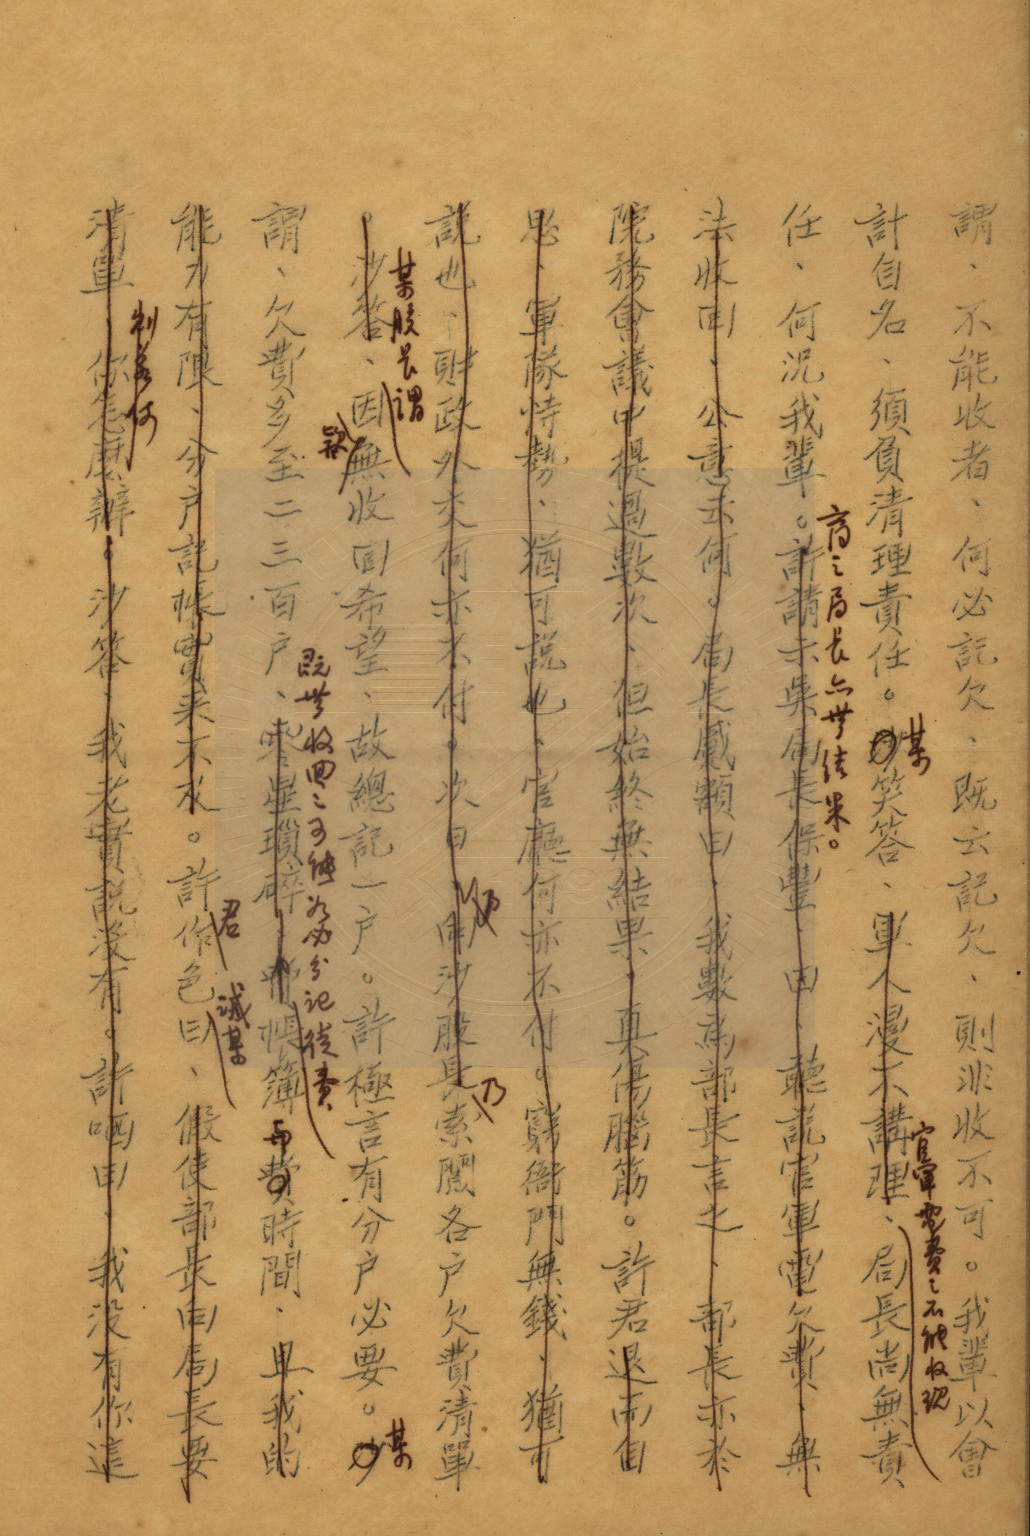 謂、不能收者、何必記欠、既云記欠、則非收不可。我輩以會
計自名、須負清理責任。沙笑答、軍人漫不講理、局長尚無責
某
官軍電費之不能收現
任、何況我輩。許請示吳局長保豐、曰、聽説官軍電欠費、無
商之局長亦無結果。
法收回、公意云何。局長蹙額曰、我數為部長言之、部長亦於
院務會議中提過數次、但始終無結果、真傷腦筋。許君退而自
思、軍隊恃勢、猶可説也、官廳何亦不付。窮衙門無錢、猶可
説也、財政外交何亦不付。次日、向沙股長索閲各戶欠費清單
乃
乃
。沙答、因無收回希望、故總記一戶。許極言有分戶必要。沙
某股長謂
款
某
謂、欠費多至二三百戶、零星瑣碎、帳簿費時間、且我的
既無收回之可能詎必分記徒費
能力有限、分戶記帳實來不及。許作色曰、假使部長向局長要
君
誡某
清單、你怎麼辦。沙答、我老實説沒有。許哂曰、我沒有你這
利若何